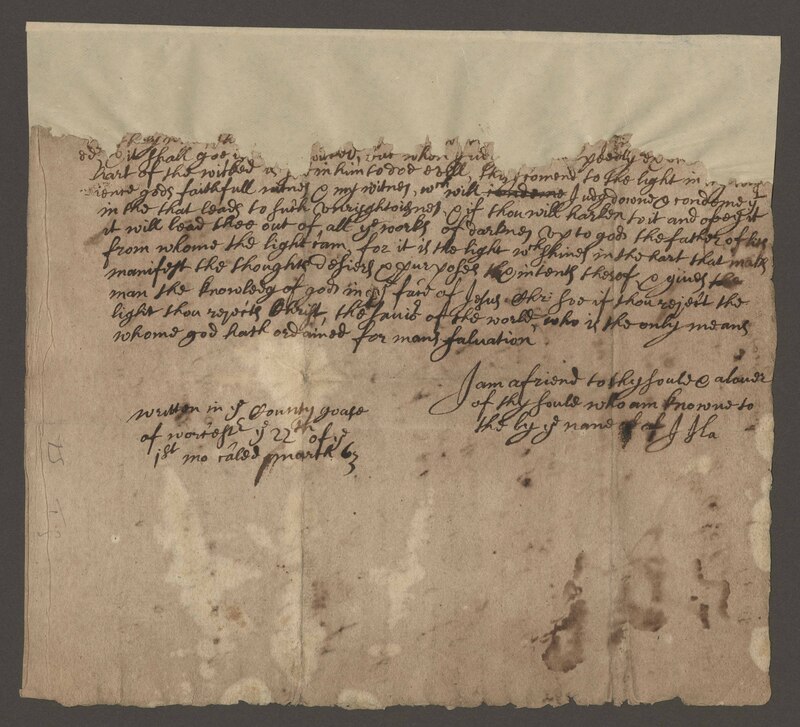 it shall goe
hart of the wicked is in him to doe evill, they comend to the light in
ience gods faithfull witnes & my witnes, wch will Judg downe & condeme yt
in the that leads to such unrightoisnes & if thou will harken to it and obey it
it will lead thee out of, all ye works of darknes & up to god the father of
from whome the light cam, for it is the light wch shines in the hart that maks
manifest the thoughts desiers & purposes & intents therof & gives the
man the knowledg of god in ye face of Jesus Chri soe if thou reject the
light thou rejects Christ, the savio of the world, who is the only means
whome god hath ordained for mans salvation
I am a friend to thy soule & a lover
of thy soule who am knowne to
the by ye name of
written in ye County goale
of worcester ye 22th of ye
1st mo caled march 63